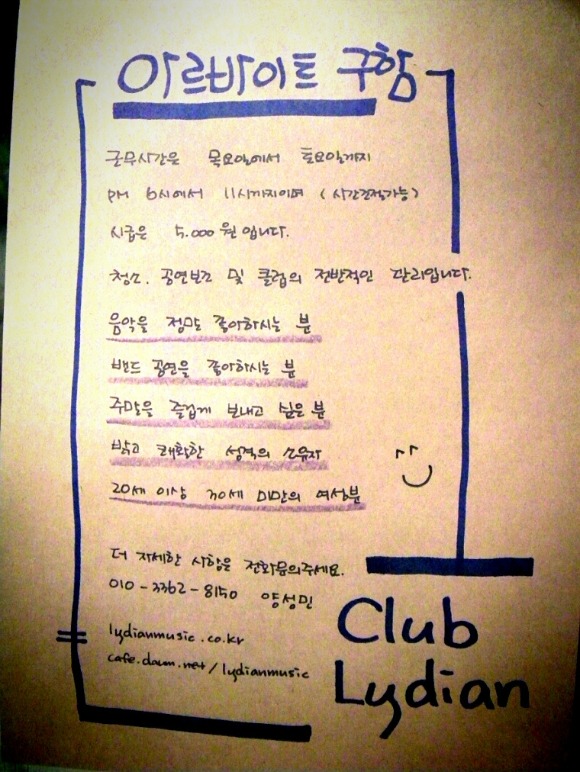 아르바이트 구함
근무시간은 목요일에서 토요일까지
PM 6시에서 11시까지이며 (시간전절가능)
시급은 5.000원 입니다.
청소. 공연보조 및 클럽의 전반적인 관리입니다.
음악을 정말 좋아하시는 분
밴드 공연을 좋아하시는 분
주말을 즐겁게 보내고 싶은 분
밝고 쾌활한 성격의 소유자
20세 이상 30세 미만의 여성분
더 자세한 사항은 전화문의주세요.
010-3362-8150 양성민
lydianmusic.co.kr
cafe.daum.net/lydianmusic
Club
Lydian